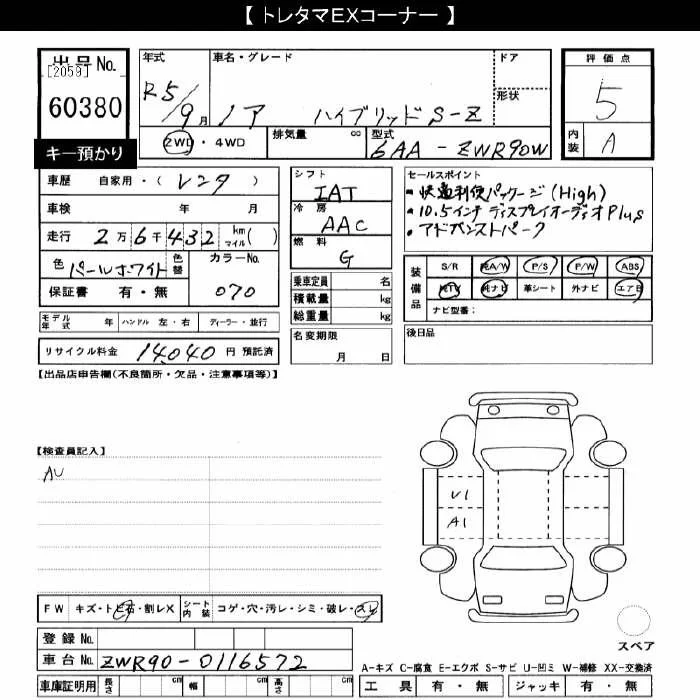 【 トレタマEXコーナー 】
出品 No.
[2059]
60380
キー預かり
年式
R5/9月
車名・グレード
ノア ハイブリッド S-Z
ドア
形状
2WD・4WD
排気量 cc
型式
6AA - ZWR90W
評価点
5
内装
A
車歴 自家用・( レンタ )
車検 年 月
走行 2万6千432 km マイル( )
色 パールホワイト 色替
カラーNo.
070
保証書 有・無
シフト
IAT
冷房
AAC
燃料
G
乗車定員 名
積載量 kg
総重量 kg
セールスポイント
・快適利便パッケージ(High)
・10.5インチ ディスプレイオーディオPlus
・アドバンストパーク
装備品
S/R 純A/W P/S P/W ABS
純TV 純ナビ 革シート 外ナビ エアB
ナビ型番:
モデル年式 年 ハンドル 左・右 ディーラー・並行
リサイクル料金 14,040 円 預託済
名変期限
月 日
後日品
【出品店申告欄(不良箇所・欠品・注意事項等)】
【検査員記入】
AU
U1
A1
FW キズ・トビ石・割レX
シート内装 コゲ・穴・汚レ・シミ・破レ・スレ
スペア
登録 No.
車台 No. ZWR90-0116572
A-キズ C-腐食 E-エクボ S-サビ U-凹ミ W-補修 XX-交換済
車庫証明用 長さ cm 幅 cm 高さ cm
工具 有・無 ジャッキ 有・無